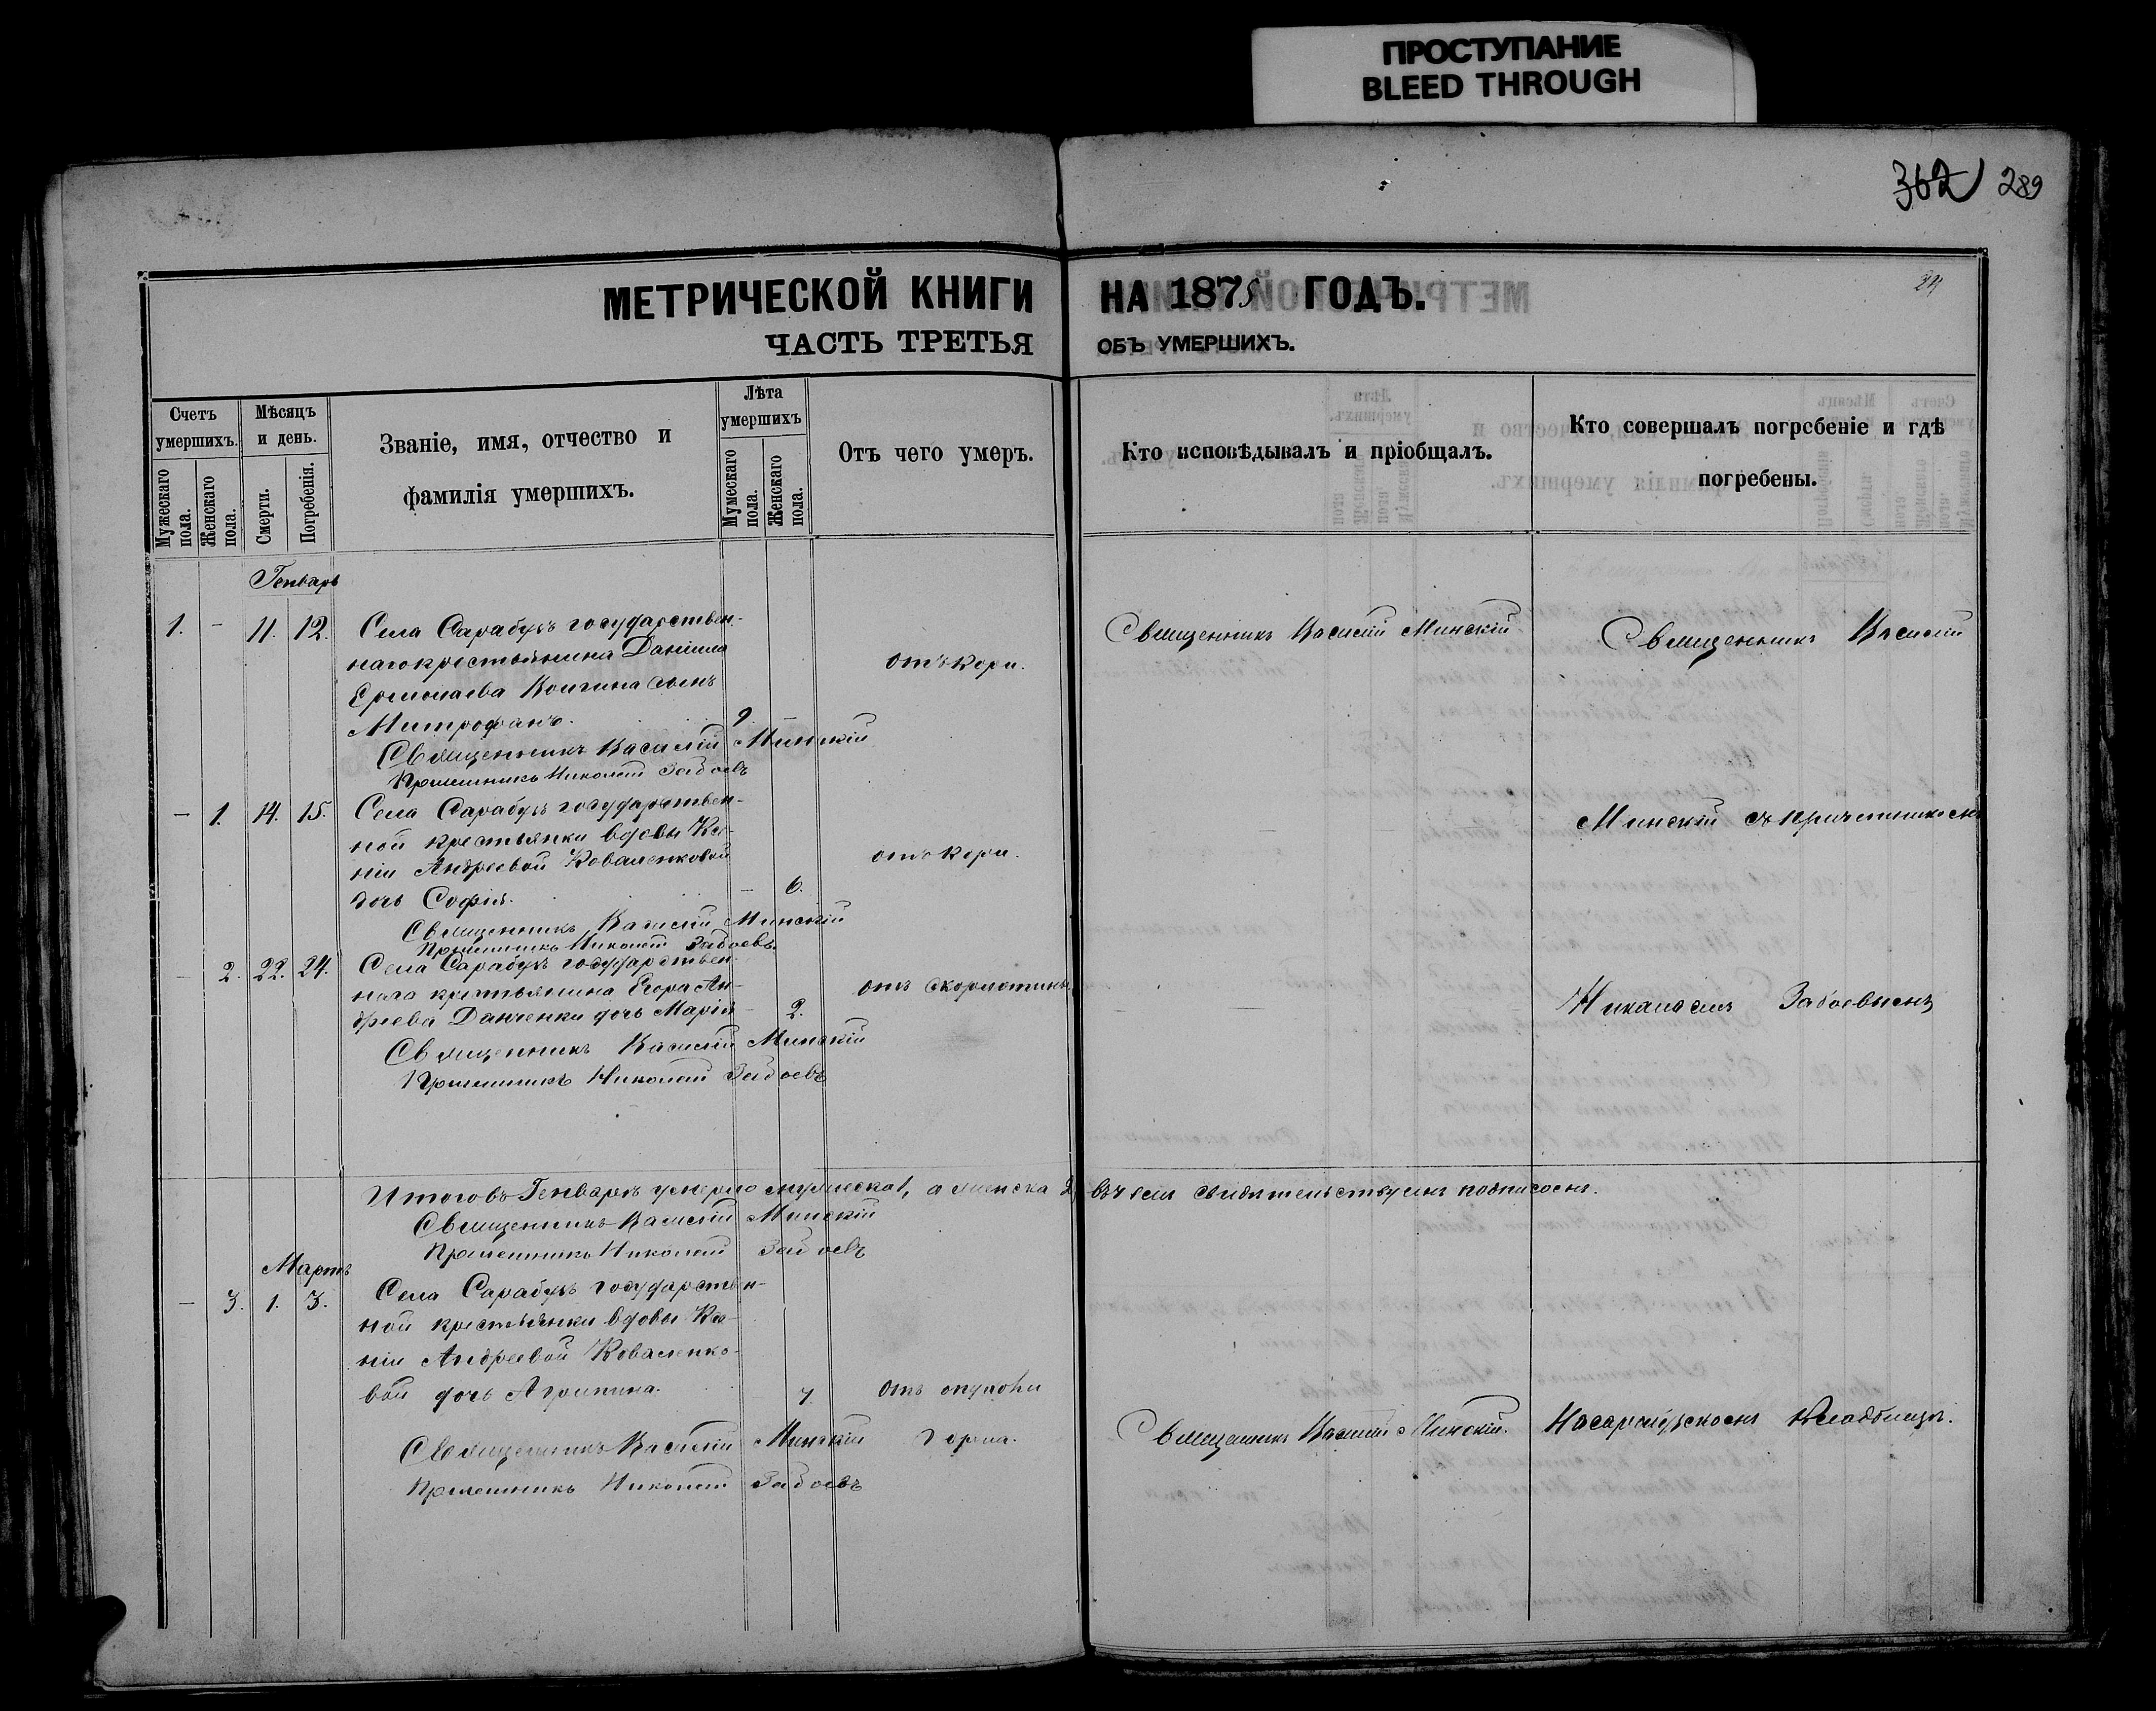 ПРОСТУПАНИЕ
BLEED THROUGH
362 289
24
МЕТРИЧЕСКОЙ КНИГИ НА 1875 ГОДЪ.
ЧАСТЬ ТРЕТЬЯ ОБЪ УМЕРШИХЪ.
Счетъ умершихъ.
Мужескаго пола.
Женскаго пола.
Мѣсяцъ и день.
Смерти.
Погребенія.
Званіе, имя, отчество и
фамилія умершихъ.
Лѣта умершихъ
Мужескаго пола.
Женскаго пола.
Отъ чего умеръ.
Кто исповѣдывалъ и пріобщалъ.
Кто совершалъ погребеніе и гдѣ
погребены.
Генварь
1. - 11. 12. Села Сарабузъ государствен-
наго крестьянина Даніила
отъ кори.
Ермолаева сынъ
Митрофанъ. 9. -
Священникъ Василій Минскій
Николай Забоевъ
Священникъ Василій Минскій
Священникъ Василій
- 1. 14. 15. Села Сарабузъ государствен-
ной крестьянки вдовы Ксе-
ніи Андреевой Коваленковой
отъ кори.
дочь Софія. - 6.
Священникъ Василій Минскій
Николай Забоевъ
Минскій съ причетникомъ
- 2. 22. 24. Села Сарабузъ государствен-
наго крестьянина Егора Ан-
отъ скорлотины
дреева Данченки дочь Марія - 2.
Священникъ Василій Минскій
Николай Забоевъ
Николаемъ Забоевымъ
Итого въ Генварѣ умерло мужеска 1, а женска 2, въ чемъ свидѣтельствуемъ подписомъ.
Священникъ Василій Минскій
Николай Забоевъ
Мартъ
- 3. 1. 3. Села Сарабузъ государствен-
ной крестьянки вдовы Ксе-
ніи Андреевой Коваленко-
вой дочь Агрипина. 7. Отъ опухоли
горла.
Священникъ Василій Минскій
Николай Забоевъ
Священникъ Василій Минскій.
На сарабузскомъ кладбищѣ.